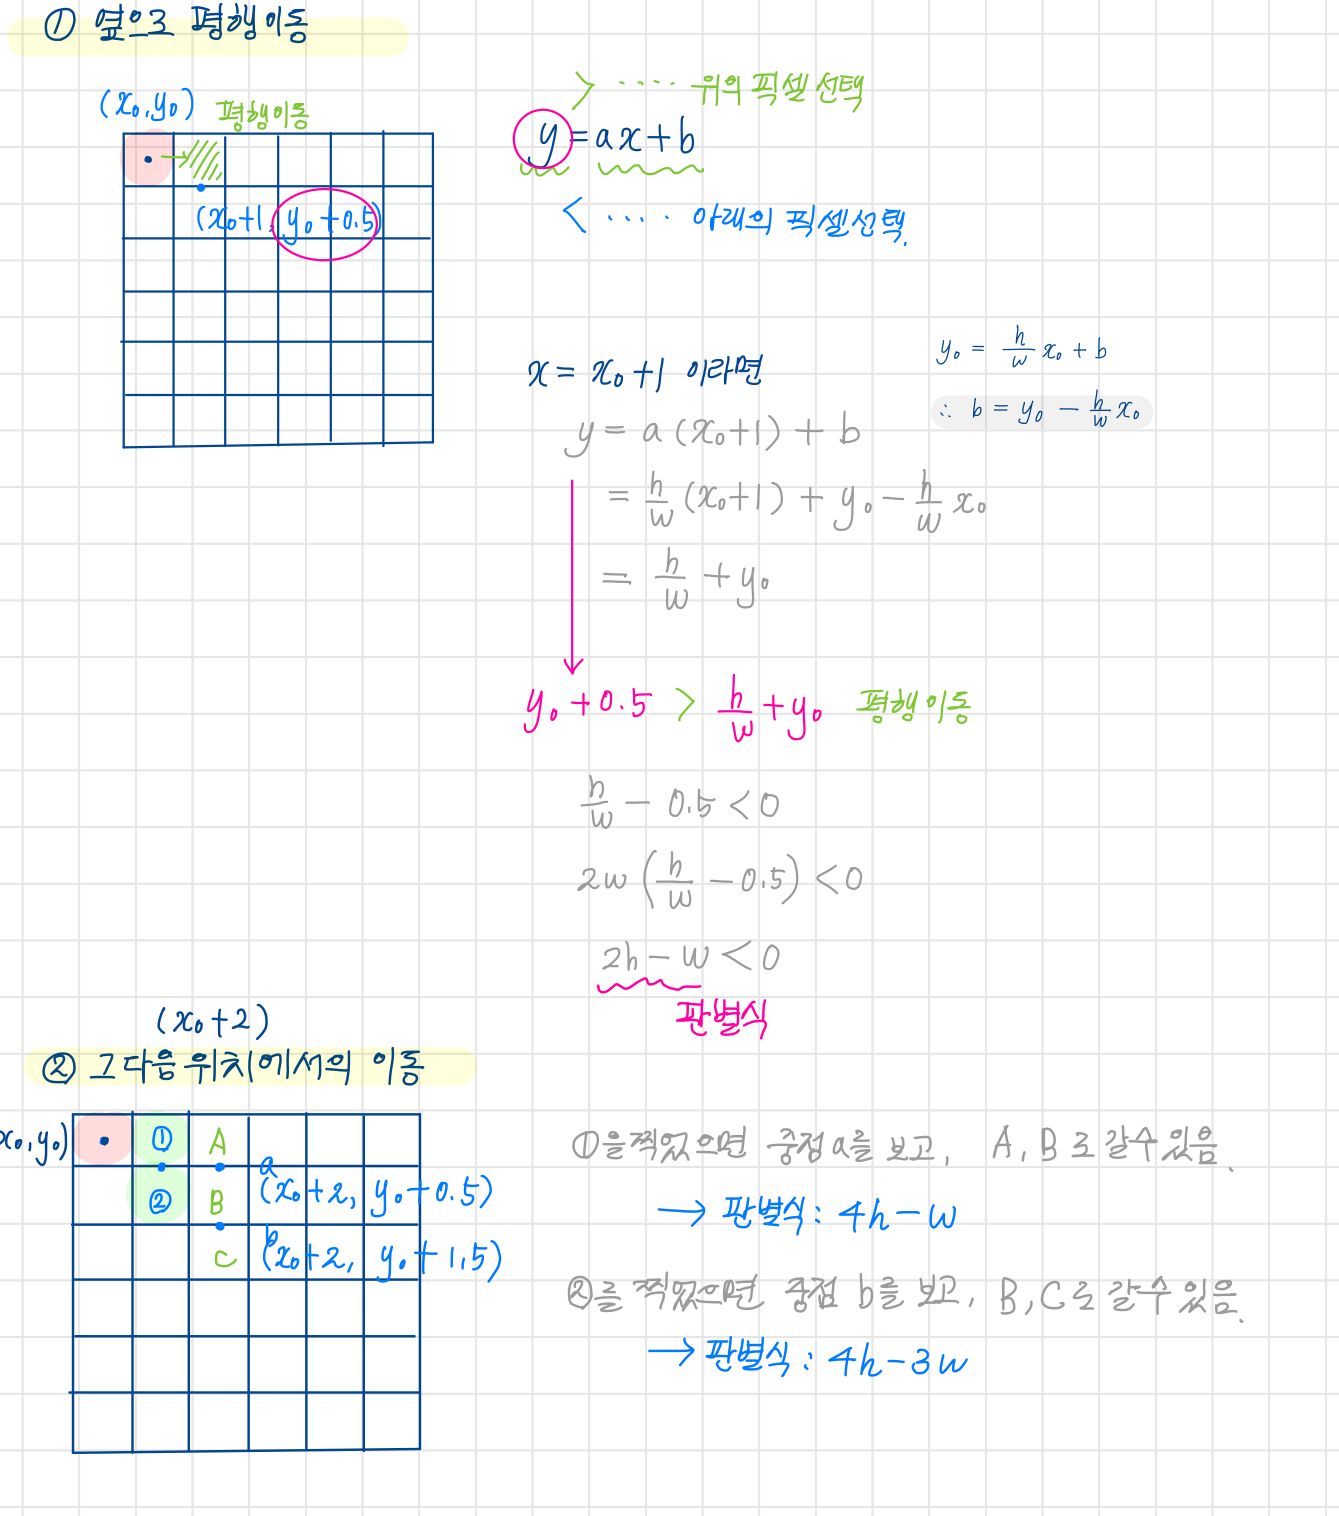 ① 옆으로 평행이동
(x₀, y₀) 평행이동
(x₀+1, y₀+0.5)
> ···· 위의 픽셀 선택
y = ax+b
< ···· 아래의 픽셀선택.
x = x₀+1 이라면
y = a(x₀+1) + b
= h/w (x₀+1) + y₀ - h/w x₀
= h/w + y₀
y₀ = h/w x₀ + b
∴ b = y₀ - h/w x₀
y₀ + 0.5 > h/w + y₀ 평행이동
h/w - 0.5 < 0
2w (h/w - 0.5) < 0
2h - w < 0
판별식
(x₀+2)
② 그다음 위치에서의 이동
x₀, y₀) ① A
a
② B (x₀+2, y₀+0.5)
b
C (x₀+2, y₀+1.5)
①을 찍었으면 중점 a를 보고, A, B로 갈수있음.
→ 판별식 : 4h-w
②를 찍었으면 중점 b를 보고, B, C로 갈수있음.
→ 판별식 : 4h-3w